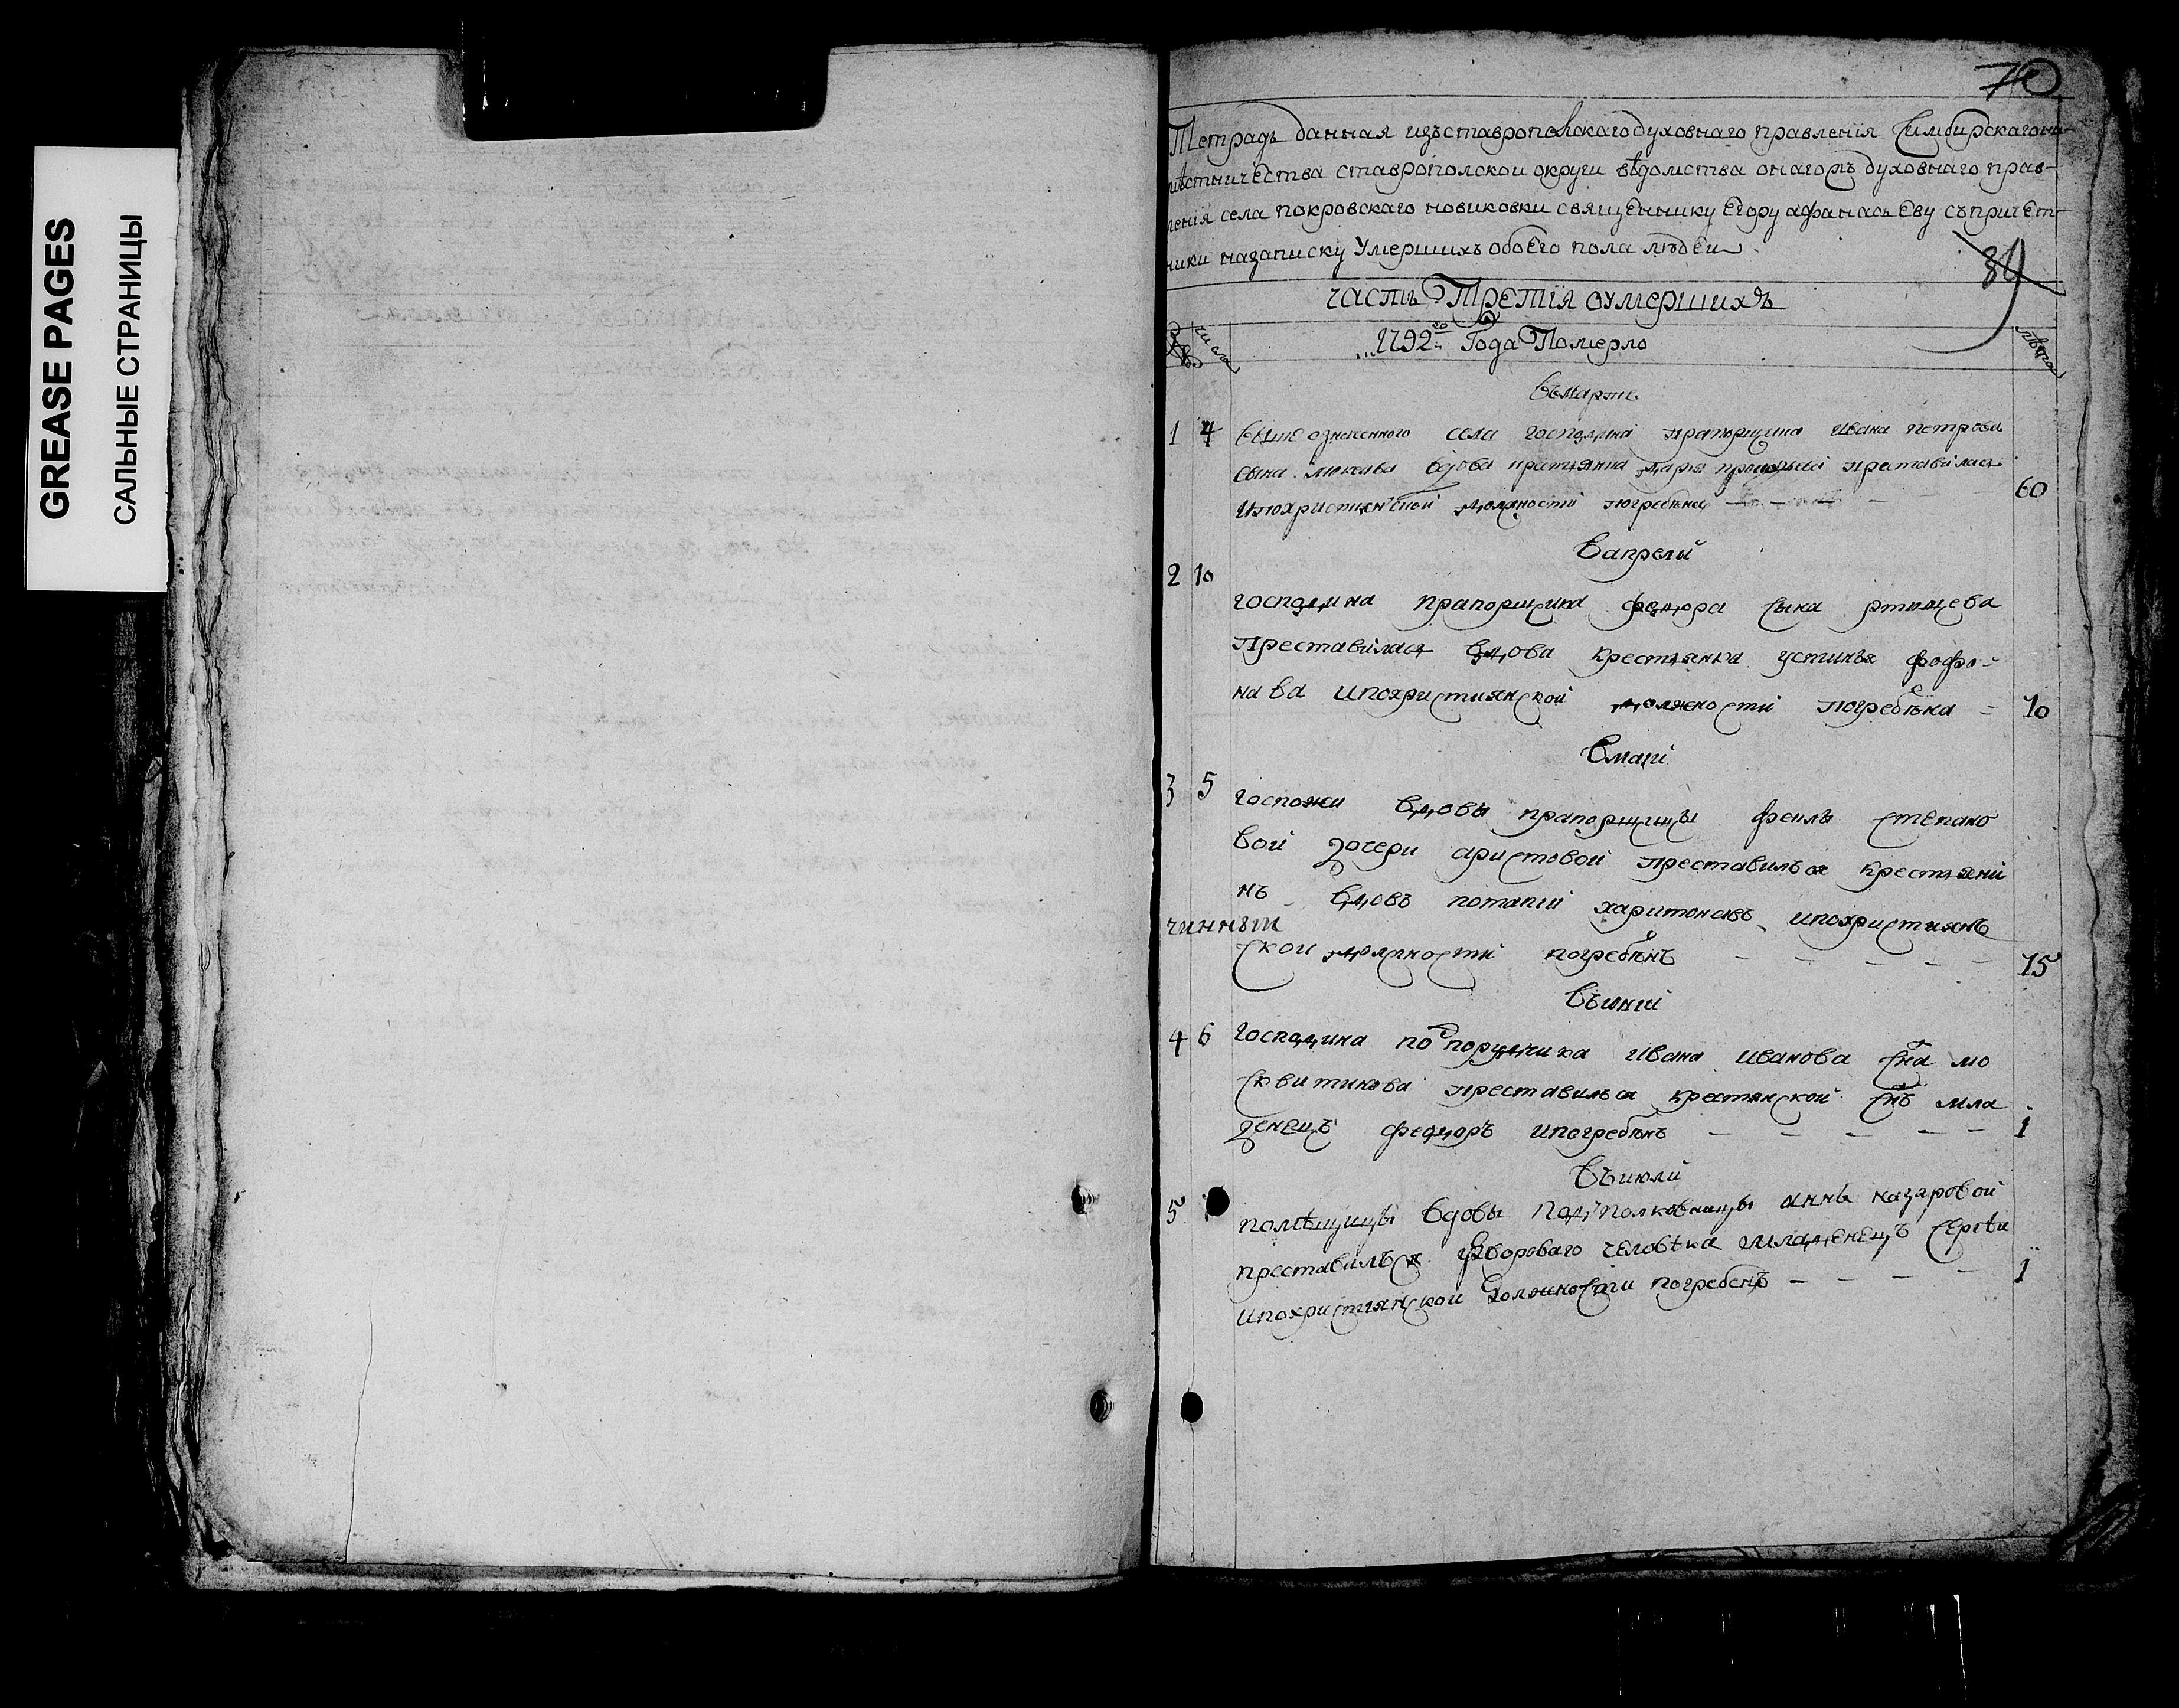 GREASE PAGES
САЛЬНЫЕ СТРАНИЦЫ
70
Тетрадь данная изъставропольскагодуховнаго правленія Симбирскагона-
мѣстничества ставропольскои округи вѣдомства онагожъ духовнаго прав-
ленія села покровскаго новиковки священнику Егору афанасьеву съпричет-
ники назаписку умершихъ обоего пола людеи
89
часть Третія оумершихъ
числа
1792го Года Померло
лѣта
въмартѣ
1 4 выше означенного села господина прапорщика ивана петрова
сына вдова дарья преставилася
ипохристиянской должности погребена
60
вапрели
2 10
господина прапорщика федора сына ртищева
преставилася вдова крестьянка устинья фофо-
нава ипохристиянской должности погребѣна
70
вмаіи
3 5 госпожи вдовы прапорщицы феклы степано
вой дочери аристовой преставилъся крестьяни
нъ вдовъ потапіи харитонавъ ипохристиянъ
чинныи
ской должности погребѣнъ
75
въиніи
4 6 господина подпорудчика ивана иванова сна мо
сквитинова преставилъся крестянской снъ мла
денецъ федоръ ипогребѣнъ
1
въиюли
5 помѣщицы вдовы подполковницы анны назаровой
преставилъся двороваго человѣка младенецъ сергѣи
ипохристиянскои должности погребенъ
1